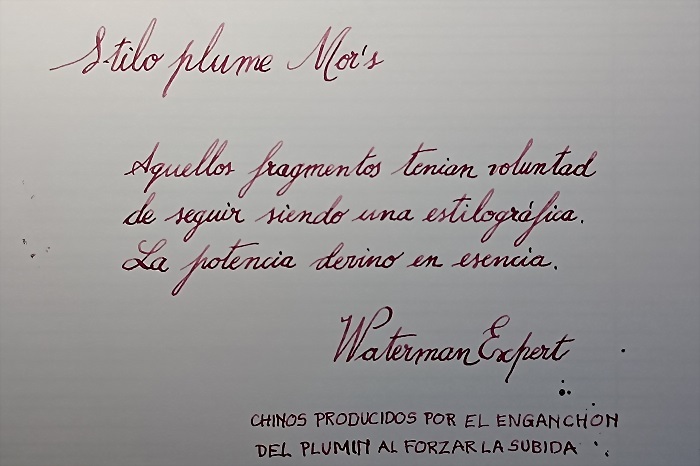 Stilo plume Moi's
Aquellos fragmentos tenian voluntad
de seguir siendo una estilográfica.
La potencia devino en esencia.
Waterman Expert
CHINOS PRODUCIDOS POR EL ENGANCHÓN
DEL PLUMIN AL FORZAR LA SUBIDA